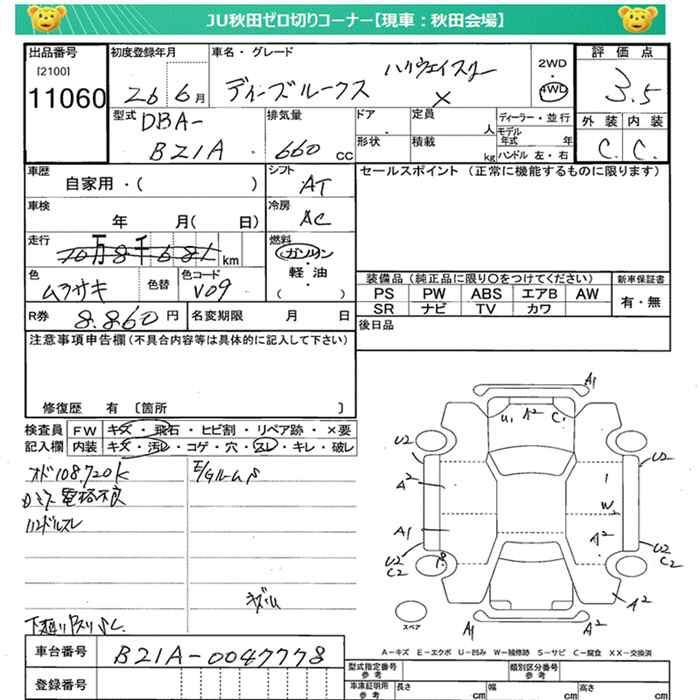 JU秋田ゼロ切りコーナー【現車：秋田会場】
出品番号 初度登録年月 車名・グレード 2WD・4WD 評価点
[2100] ハイウェイスター
11060 26 6月 ディーズルークス X 3.5
型式 DBA-B21A 排気量 660cc ドア 定員 人 ディーラー・並行 外装 内装
形状 積載 kg モデル年式 年 ハンドル 左・右 C. C.
車歴 自家用・( ) シフト AT セールスポイント (正常に機能するものに限ります)
車検 年 月( 日) 冷房 AC
走行 10万8千681 km 燃料 ガソリン
軽油・( )
色 ムラサキ 色替 色コード V09
装備品 (純正品に限り○をつけてください) 新車保証書
PS PW ABS エアB AW 有・無
SR ナビ TV カワ
R券 8.860円 名変期限 月 日 後日品
注意事項申告欄(不具合内容等は具体的に記入して下さい)
修復歴 有 〔箇所 〕
検査員 FW キズ・飛石・ヒビ割・リペア跡・×要
記入欄 内装 キズ・汚レ・コゲ・穴・スレ・キレ・破レ
オド108.720k E/Gルーム
電格不良
ハンドルスレ
下廻り
A1
U1 A2 C.
U2 U2
A2 1
W2
A1 A2
U2 C2 P. U2 C2
A2
スペア A1 A2
A－キズ E－エクボ U－凹み W－補修跡 S－サビ C－腐食 XX－交換済
車台番号 B21A-0047778
登録番号
型式指定番号 参考 類別区分番号 参考
車凍証明用 参考 長さ cm 幅 cm 高さ cm